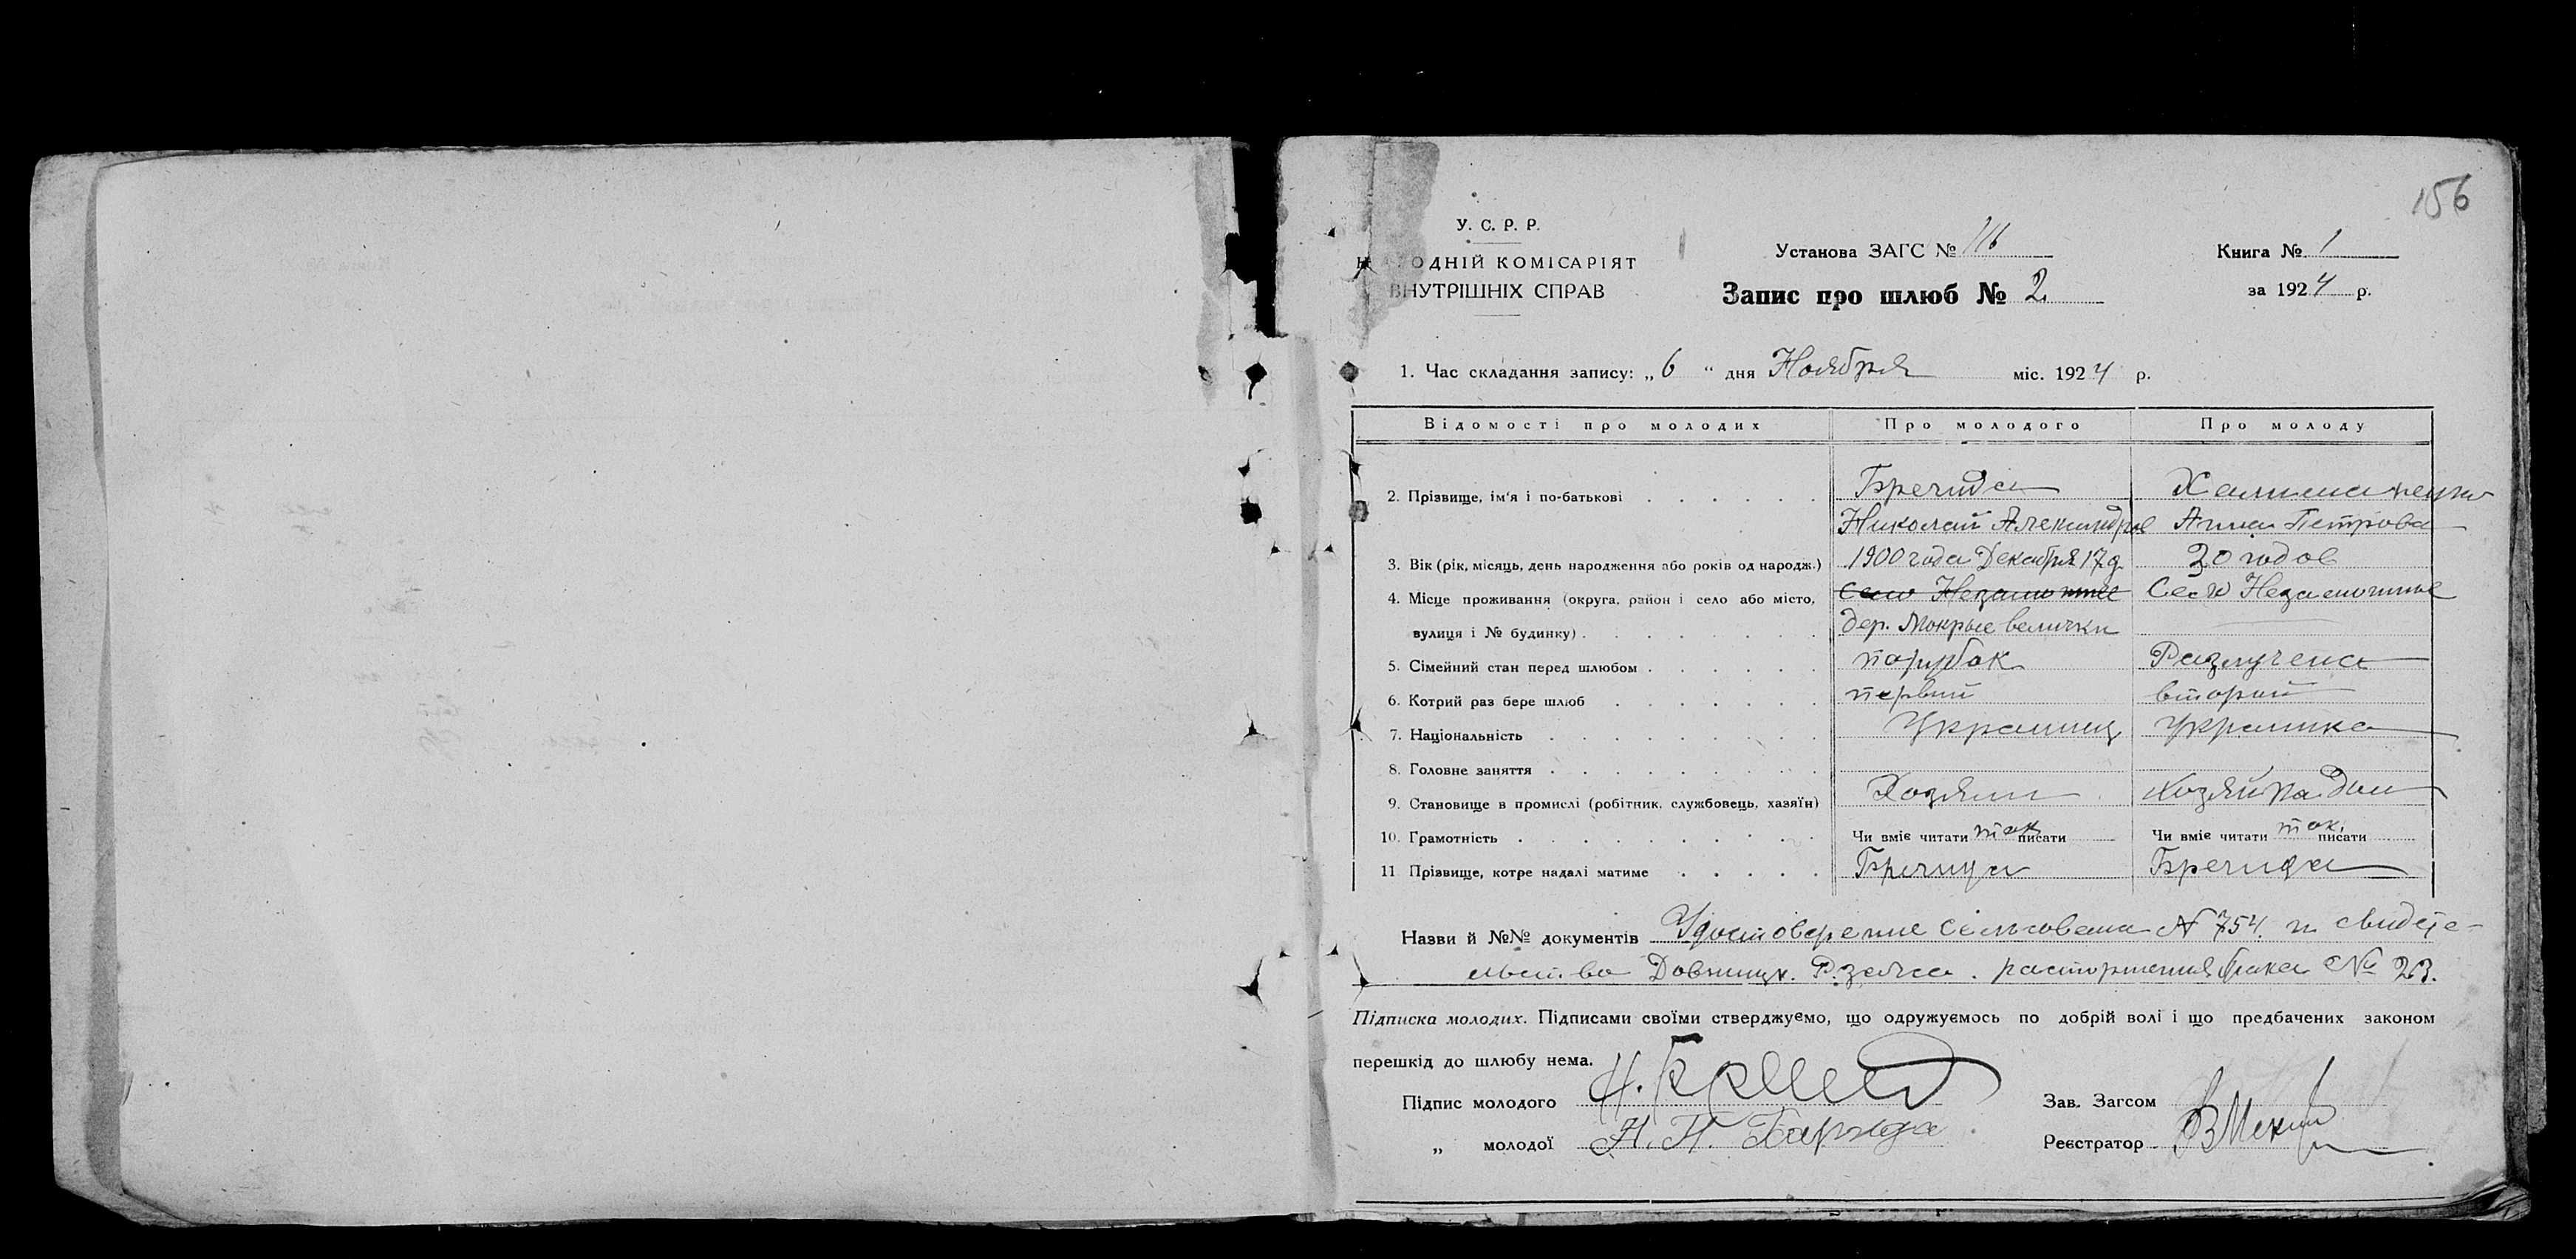 156
У. С. Р. Р.
НАРОДНІЙ КОМІСАРІЯТ
ВНУТРІШНІХ СПРАВ
Установа ЗАГС № 116
Запис про шлюб № 2
Книга № 1
за 1924 р.
1. Час складання запису: „ 6 “ дня Ноября міс. 1924 р.
Відомості про молодих Про молодого Про молоду
2. Прізвище, ім'я і по-батькові
Николай Анна Петрова
3. Вік (рік, місяць, день народження або років од народж.) 1900 года Декабря 17 д. 20 годов
4. Місце проживання (округа, район і село або місто, Село Село
вулиця і № будинку) дер. Мокрые велички
5. Сімейний стан перед шлюбом парубок Разлучена
6. Котрий раз бере шлюб первый второй
7. Національність Украинц Украинка
8. Головне заняття
9. Становище в промислі (робітник, службовець, хазяїн) Хозяин Хозяйка
10. Грамотність Чи вміє читати так писати Чи вміє читати так писати
11 Прізвище, котре надалі матиме
Назви й №№ документів Удостоверение сельсовета № 754 и свидете-
льство расторжения брака № 23.
Підписка молодих. Підписами своїми стверджуємо, що одружуємось по добрій волі і що предбачених законом
перешкід до шлюбу нема.
Підпис молодого
„ молодої
Зав. Загсом
Реєстратор